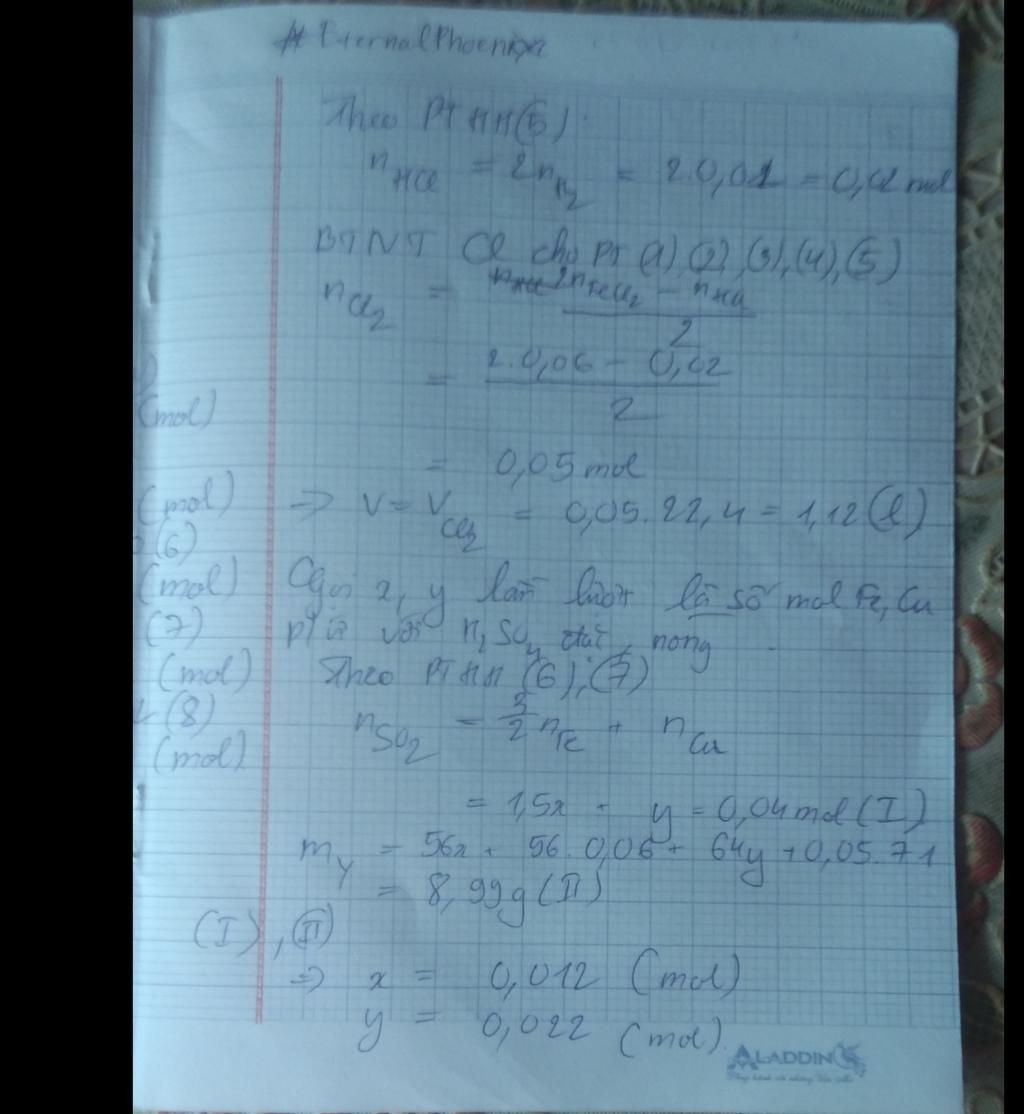 # EternalPhoenix
Theo PTHH(5)
n HCl = 2n H2 = 2.0,01 = 0,02 mol
BTNT Cl cho PT (1), (2), (3), (4), (5)
n Cl2 = 2n FeCl2 - n HCl
2
= 2.0,06 - 0,02
2
(mol)
= 0,05 mol
(mol) => V = V Cl2 = 0,05.22,4 = 1,12 (l)
(6)
(mol) Gọi x, y lần lượt là số mol Fe, Cu
(7) pư với H2SO4 đặc, nóng
(mol) Theo PTHH (6), (7)
(8) n SO2 = 3/2 n Fe + n Cu
(mol)
= 1,5x + y = 0,04 mol (I)
m Y = 56x + 56.0,06 + 64y + 0,05.71
= 8,99g (II)
(I), (II)
=> x = 0,012 (mol)
y = 0,022 (mol).
ALADDIN